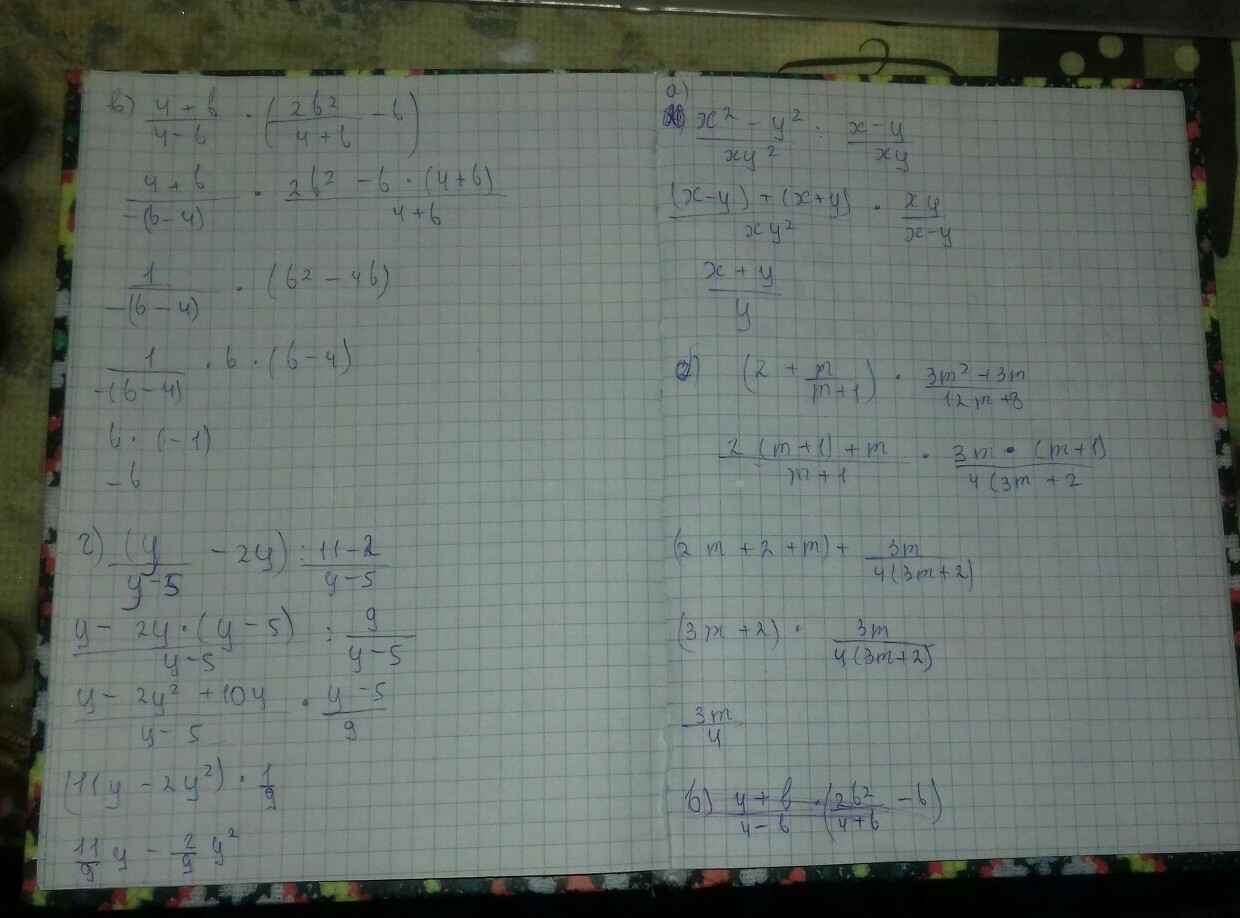 в) (4 + b)/(4 − b) · (2b²/(4 + b) − b)
(4 + b)/(−(b − 4)) · (2b² − b · (4 + b))/(4 + b)
1/(−(b − 4)) · (b² − 4b)
1/(−(b − 4)) · b · (b − 4)
b · (−1)
− b
г) (y/(y − 5) − 2y) : (11 − 2)/(y − 5)
(y − 2y · (y − 5))/(y − 5) : 9/(y − 5)
(y − 2y² + 10y)/(y − 5) · (y − 5)/9
(11y − 2y²) · 1/9
11/9 y − 2/9 y²
а)
(x² − y²)/(xy²) : (x − y)/(xy)
((x − y) + (x + y))/(xy²) · (xy)/(x − y)
(x + y)/y
(2 + m/(m + 1)) · (3m² + 3m)/(12m + 8)
(2 (m + 1) + m)/(m + 1) · (3m · (m + 1))/(4(3m + 2
(2m + 2 + m) + 3m/(4(3m + 2))
(3m + 2) · 3m/(4(3m + 2))
3m/4
в) (4 + b)/(4 − b) · (2b²/(4 + b) − b)